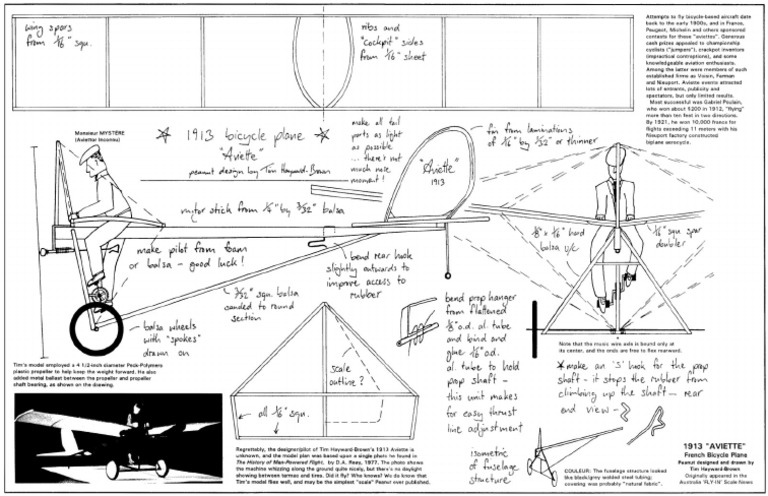 wing spars
from 1/16" squ.
ribs and
"cockpit" sides
from 1/16" sheet
Attempts to fly bicycle-based aircraft date
back to the early 1900s, and in France,
Peugeot, Michelin and others sponsored
contests for these "aviettes". Generous
cash prizes appealed to championship
cyclists ("jumpers"), crackpot inventors
(impractical contraptions), and some
knowledgeable aviation enthusiasts.
Among the latter were members of such
established firms as Voisin, Farman
and Nieuport. Aviette events attracted
lots of entrants, publicity and
spectators, but only limited results.
Most successful was Gabriel Poulain,
who won about $200 in 1912, "flying"
more than ten feet in two directions.
By 1921, he won 10,000 francs for
flights exceeding 11 meters with his
Nieuport factory constructed
biplane aerocycle.
Monsieur MYSTÈRE
(Aviettor inconnu)
1913 bicycle plane
"Aviette"
peanut design by Tim Hayward-Brown
make all tail
parts as light
as possible
... there's not
much nose
moment!
fin from laminations
of 1/16" by 1/32" or thinner
"Aviette"
1913
motor stick from 1/4" by 3/32" balsa
make pilot from foam
or balsa - good luck!
bend rear hook
slightly outwards to
improve access to
rubber
1/8" x 1/16" hard
balsa u/c
1/16" squ spar
doubler
3/32" squ. balsa
sanded to round
section
balsa wheels
with "spokes"
drawn on
bend prop hanger
from flattened
1/8" o.d. al. tube
and bind and
glue 1/16" o.d.
al. tube to hold
prop shaft -
this unit makes
for easy thrust
line adjustment
Note that the music wire axle is bound only at
its center, and the ends are free to flex rearward.
make an 'S' hook for the prop
shaft - it stops the rubber from
climbing up the shaft - rear
end view -
Tim's model employed a 4 1/2-inch diameter Peck-Polymers
plastic propeller to help keep the weight forward. He also
added metal ballast between the propeller and propeller
shaft bearing, as shown on the drawing.
scale
outline?
all 1/16" squ.
Regrettably, the designer/pilot of Tim Hayward-Brown's 1913 Aviette is
unknown, and the model plan was based upon a single photo he found in
The History of Man-Powered Flight, by D.A. Reay, 1977. The photo shows
the machine whizzing along the ground quite nicely, but there's no daylight
showing between tarmac and tires. Did it fly? Who knows? We do know that
Tim's model flies well, and may be the simplest "scale" Peanut ever published.
isometric
of fuselage
structure
COLEUR: The fuselage structure looked
like black/grey welded steel tubing;
covering was probably "natural fabric".
1913 "AVIETTE"
French Bicycle Plane
Peanut designed and drawn by
Tim Hayward-Brown
Originally appeared in the
Australia 'FLY-IN' Scale News